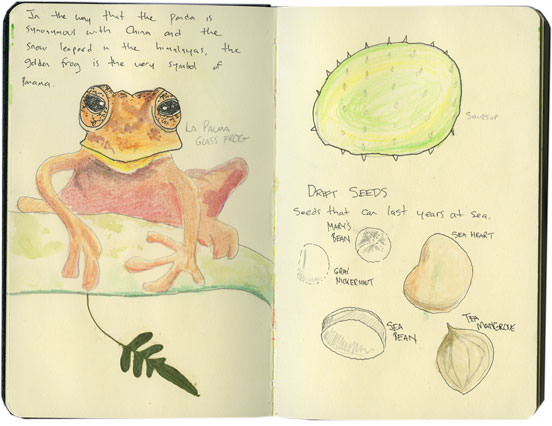 In the way that the panda is
synonymous with China and the
snow leopard in the himalayas, the
golden frog is the very symbol of
Panama.
LA PALMA
GLASS FROG
SOURSOP
DRIFT SEEDS
Seeds that can last years at sea.
MARY'S
BEAN
SEA HEART
GRAY
NICKERNUT
SEA
BEAN
TEA
MANGROVE